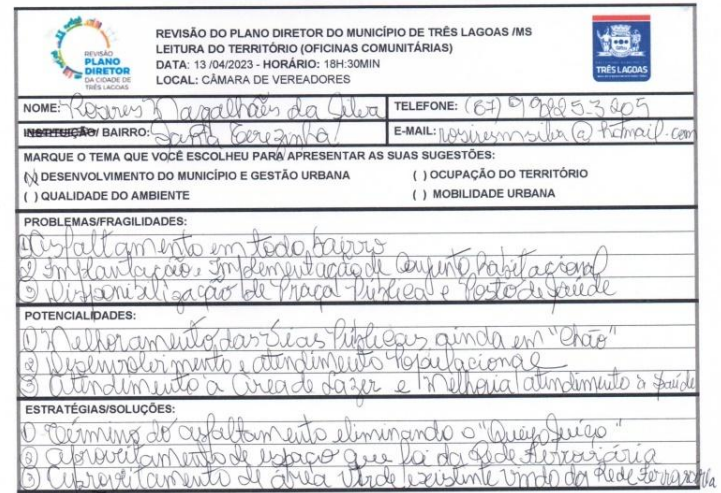 REVISÃO
PLANO
DIRETOR
DA CIDADE DE
TRÊS LAGOAS
REVISÃO DO PLANO DIRETOR DO MUNICÍPIO DE TRÊS LAGOAS /MS
LEITURA DO TERRITÓRIO (OFICINAS COMUNITÁRIAS)
DATA: 13 /04/2023 - HORÁRIO: 18H:30MIN
LOCAL: CÂMARA DE VEREADORES
TRÊS LAGOAS
NOME: Rosires Magalhães da Silva
TELEFONE: (67) 99825-3205
INSTITUIÇÃO/ BAIRRO: Santa Terezinha
E-MAIL: rosiresmsilva@hotmail.com
MARQUE O TEMA QUE VOCÊ ESCOLHEU PARA APRESENTAR AS SUAS SUGESTÕES:
(X) DESENVOLVIMENTO DO MUNICÍPIO E GESTÃO URBANA
( ) OCUPAÇÃO DO TERRITÓRIO
( ) QUALIDADE DO AMBIENTE
( ) MOBILIDADE URBANA
PROBLEMAS/FRAGILIDADES:
① Asfaltamento em todo bairro
② Implantação e Implementação de Conjunto habitacional
③ Disponibilização de Praça Pública e Posto de Saúde
POTENCIALIDADES:
① Melhoramento das Vias Públicas ainda em "Chão"
② Desenvolvimento e atendimento Populacional
③ Atendimento à Área de Lazer e Melhoria atendimento à Saúde
ESTRATÉGIAS/SOLUÇÕES:
① Término do asfaltamento eliminando o
② Aproveitamento de espaço que foi da Rede Ferroviária
③ Aproveitamento de área Verde existente vindo da Rede Ferroviária